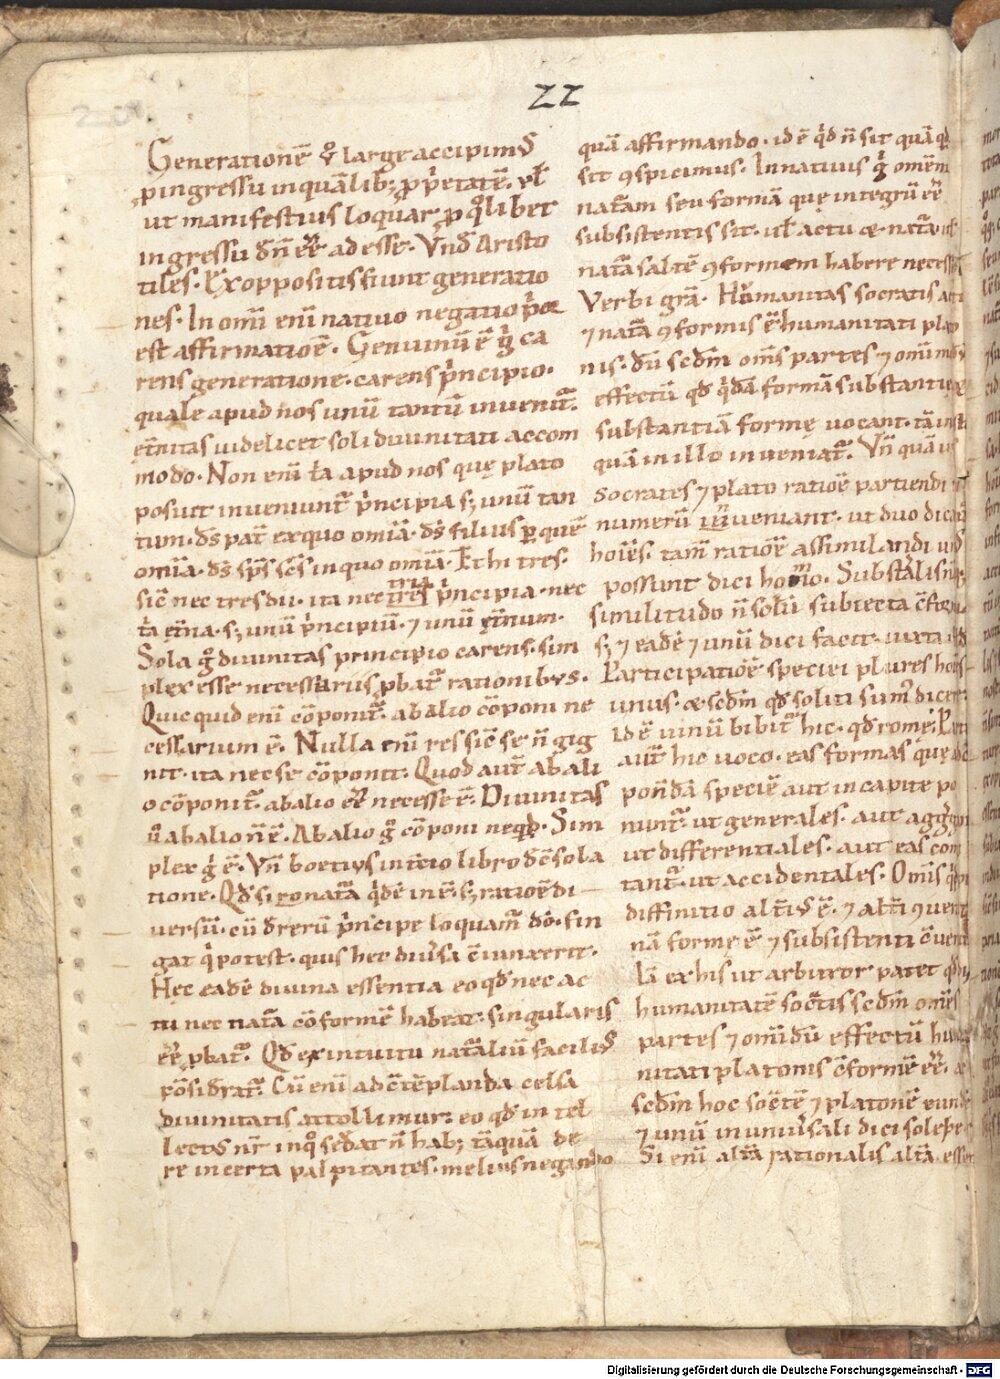 22
Generationē ỽ large accipimꝰ
ꝓ ingressu in quālib; ꝓp̄etatē. ul̄
ut manifestius loquar ꝓ qͦlibet
ingressu dn̄ ēē ad esse. Vnd̄ Aristo
tiles. Ex oppositis fiunt generatio
nes. In omī enī natiuo negatio p̄or
est affirmatiōe. Genuinū ē g̊ ca
rens generatione. carens p̄ncipio.
quale apud nos unū tantū inuenit᷑.
et̄nitas uidelicet soli diuinitati accom
modo. Non enī t̄a apud nos quę plato
posuit inueniunt᷑ p̄ncipia s; unū tan
tum. ds̄ pat̄ ex quo om̄ia. ds̄ filius ꝑ quē
om̄ia. ds̄ sp̄s sc̄s in quo om̄ia. Et hi tres.
sic̄ nec tres dii. ita nec tria p̄ncipia. nec
t̄a et̄na. s; unū p̄ncipiū. ⁊ unū et̄num.
Sola g̊ diuinitas principio carens. sim
plex esse necessariis ꝓbat᷑ rationibus.
Quicquid enī cōponit᷑. ab alio cōponi ne
cessarium ē. Nulla enī res sic̄ se n̄ gig
nit. ita nec se cōponit. Quod aut̄ ab ali
o cōponit᷑. ab alio ēē necesse ē. Diuinitas
ů ab alio n̄ ē. Ab alio g̊ cōponi neqͥd. Sim
plex g̊ ē. Vn̄ boetius initio libro de cōsola
tione. Qd̄ si
uersū. cū d̄ rerū p̄ncipe loquam᷑ dō. fin
gat qͥ potest. quis hec diuersa c̄iunxerit.
Hęc eadē diuina essentia eo qd̄ nec ac
tu nec nat̄a cōformē habeat. singularis
ēē ꝓbat᷑. Qd̄ ex intuitu nat̄aliū facilius
cōsid̄rat᷑. Cū enī ad c̄tēplanda celsa
diuinitatis attollimur. eo qd̄ in tel
lectꝰ nr̄ in qͦ sedat n̄ hab; tāquā de
re incerta palpitantes. melius negando
quā affirmando. id ē qͥd n̄ sit quā qͥd
sit ꝯspicimus. In natiuis g̊ omēm
nat̄am seu formā quę integrū ēē
subsistentis sit. ul̄ actu & nat̄a ul̄
nat̄a saltē ꝯformem habere necesse
Verbi gr̄a. Humanitas socratis actu
⁊ nat̄a ꝯformis ē humanitati plato
nis. dū sc̄dm om̄s partes ⁊ omī modū
effectū qd̄ qͥdā formā substantię
substantiā formę uocant. tā in isto
quā in illo inueniat᷑. Vn̄ quāuis
Socrates ⁊ plato ratiōe partiendi
numerū inueniant. ut duo dicant᷑
hoīes. tam̄ ratiōe assimilandi unꝰ
possunt dici homo. Subst̄alis nāq;
similitudo n̄ solū subiecta c̄format
s; ⁊ eadē ⁊ unū dici facit. iuxta illd̄
Participatiōe speciei plures hoīes
unus. & sc̄dm qd̄ soliti sum᷑ dicere.
id ē uinū bibit᷑ hic. qd̄ romę.
aut̄ hic uoco. eas formas quę
ponēdā speciē aut in capite po
nunt᷑ ut generales. aut agg̊gant᷑
ut differentiales. aut eas com
tant᷑. ut accidentales. Om̄is
diffinitio alt̄iꝰ ē. ⁊ alt̄i ꝯuenit
nā formę ē ⁊ subsistenti c̄uenit
La ex his ut arbitror patet qd̄
humanitatē soc̄tis sc̄dm om̄es
partes ⁊ omīdū effectū hu
nitati platonis c̄formē ēē. &
sc̄dm hoc soc̄tē ⁊ platonē eundē
⁊ unū in uniu̓sali dici solere
Si enī alt̄a rationalis alt̄a esset